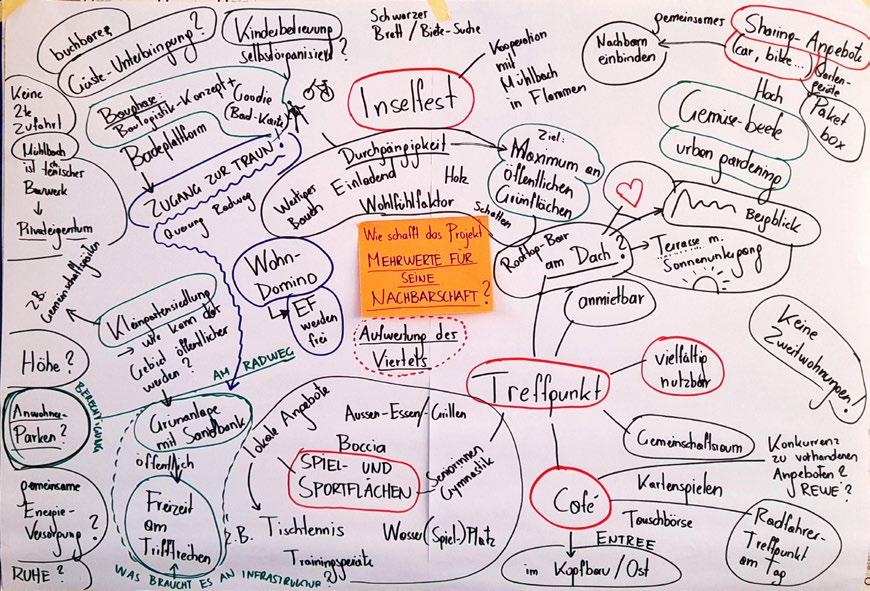 buchbares
Gäste-Unterbringung?
Kinderbetreuung
selbstorganisiert?
Schwarzer
Brett / Biete-Suche
Kooperation
mit
Mühlbach
in Flammen
gemeinsamer
Nachbarn
einbinden
Sharing-Angebote
(car, bike...)
Gartengeräte
Paket
box
Keine
2te
Zufahrt
Mühlbach
ist techn.
Bauwerk
→ Privateigentum
Bauphase:
Baulogistik-Konzept +
Goodie
Bad-Karte
Badeplattform
ZUGANG ZUR TRAUN!
Querung Radweg
Inselfest
Durchgängigkeit
Einladend
Holz
Wertiges
Bauen
Wohlfühlfaktor
Ziel:
Maximum an
öffentlichen
Grünflächen
Schatten
Hoch
Gemüse-beete
urban gardening
Bergblick
Rooftop-Bar
am Dach?
Terrasse m.
Sonnenuntergang
anmietbar
Wie schafft das Projekt
MEHRWERTE FÜR
SEINE
NACHBARSCHAFT?
Wohn-
Domino
EF
werden
frei
Aufwertung des
Viertels
z.B.
Gemeinschaftsgärten
Kleingartensiedlung
→ wie kann das
Gebiet öffentlicher
werden?
AM RADWEG
Höhe?
BERECHTIGUNG
Anwohner-
Parken?
Grünanlage
mit Sandbank
öffentlich
Freizeit
am
Triftrechen
gemeinsame
Energie-
Versorgung?
RUHE?
WAS BRAUCHT ES AN INFRASTRUKTUR?
Lokale Angebote
Aussen-Essen/-Grillen
Boccia
SPIEL- UND
SPORTFLÄCHEN
Seniorinnen
Gymnastik
z.B.
Tischtennis
Wasser(Spiel-)Platz
Trainingsgeräte
Treffpunkt
vielfältig
nutzbar
Keine
Zweitwohnungen!
Gemeinschaftsraum
Konkurrenz
zu vorhandenen
Angeboten?
REWE?
Café
Kartenspielen
Tauschbörse
Radfahrer-
Treffpunkt
am Tag
ENTREE
im Kopfbau / Ost